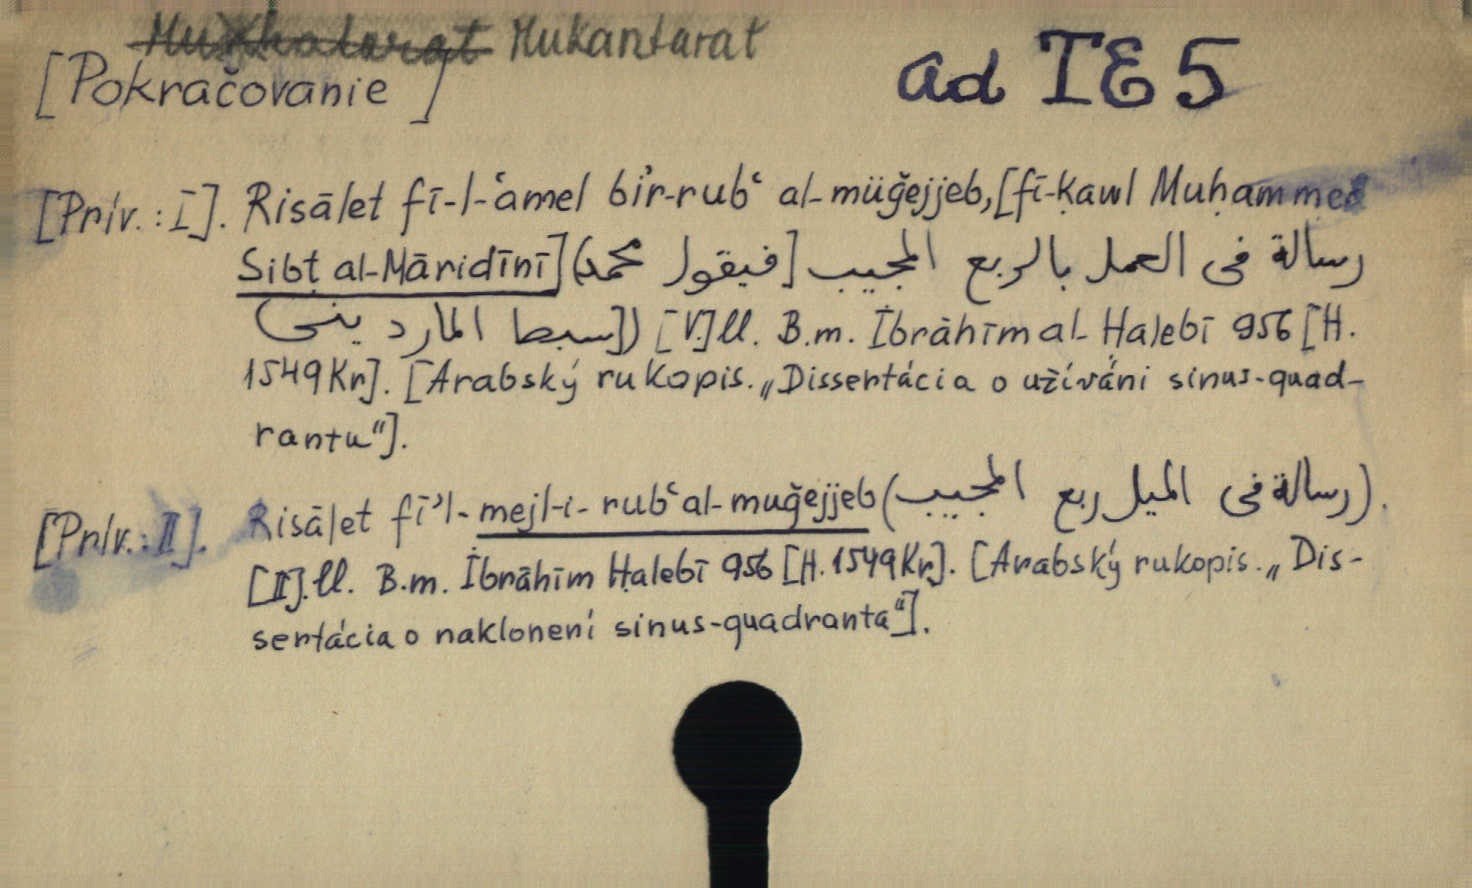 Mukantarat
[Pokračovanie] ad TE 5
[Prív.: I]. Risālet fī-l-ʿamel bi'r-rubʿ al-müǧejjeb, [fī-ḳawl Muḥammed
Sibṭ al-Māridīnī] (رسالة فى العمل بالربع المجيب [فيقول محمد
سبط المارد ينى]) [V.] ll. B.m. İbrāhīm al-Ḥalebī 956 [H.
1549 Kr]. [Arabský rukopis. „Dissertácia o užíváni sinus-quad-
rantu“].
[Prív.: II]. Risālet fī'l-mejl-i-rubʿ al-muǧejjeb (رسالة فى الميل ربع المجيب).
[II]. ll. B.m. İbrāhīm Ḥalebī 956 [H. 1549 Kr]. [Arabský rukopis. „Dis-
sertácia o naklonení sinus-quadranta“].